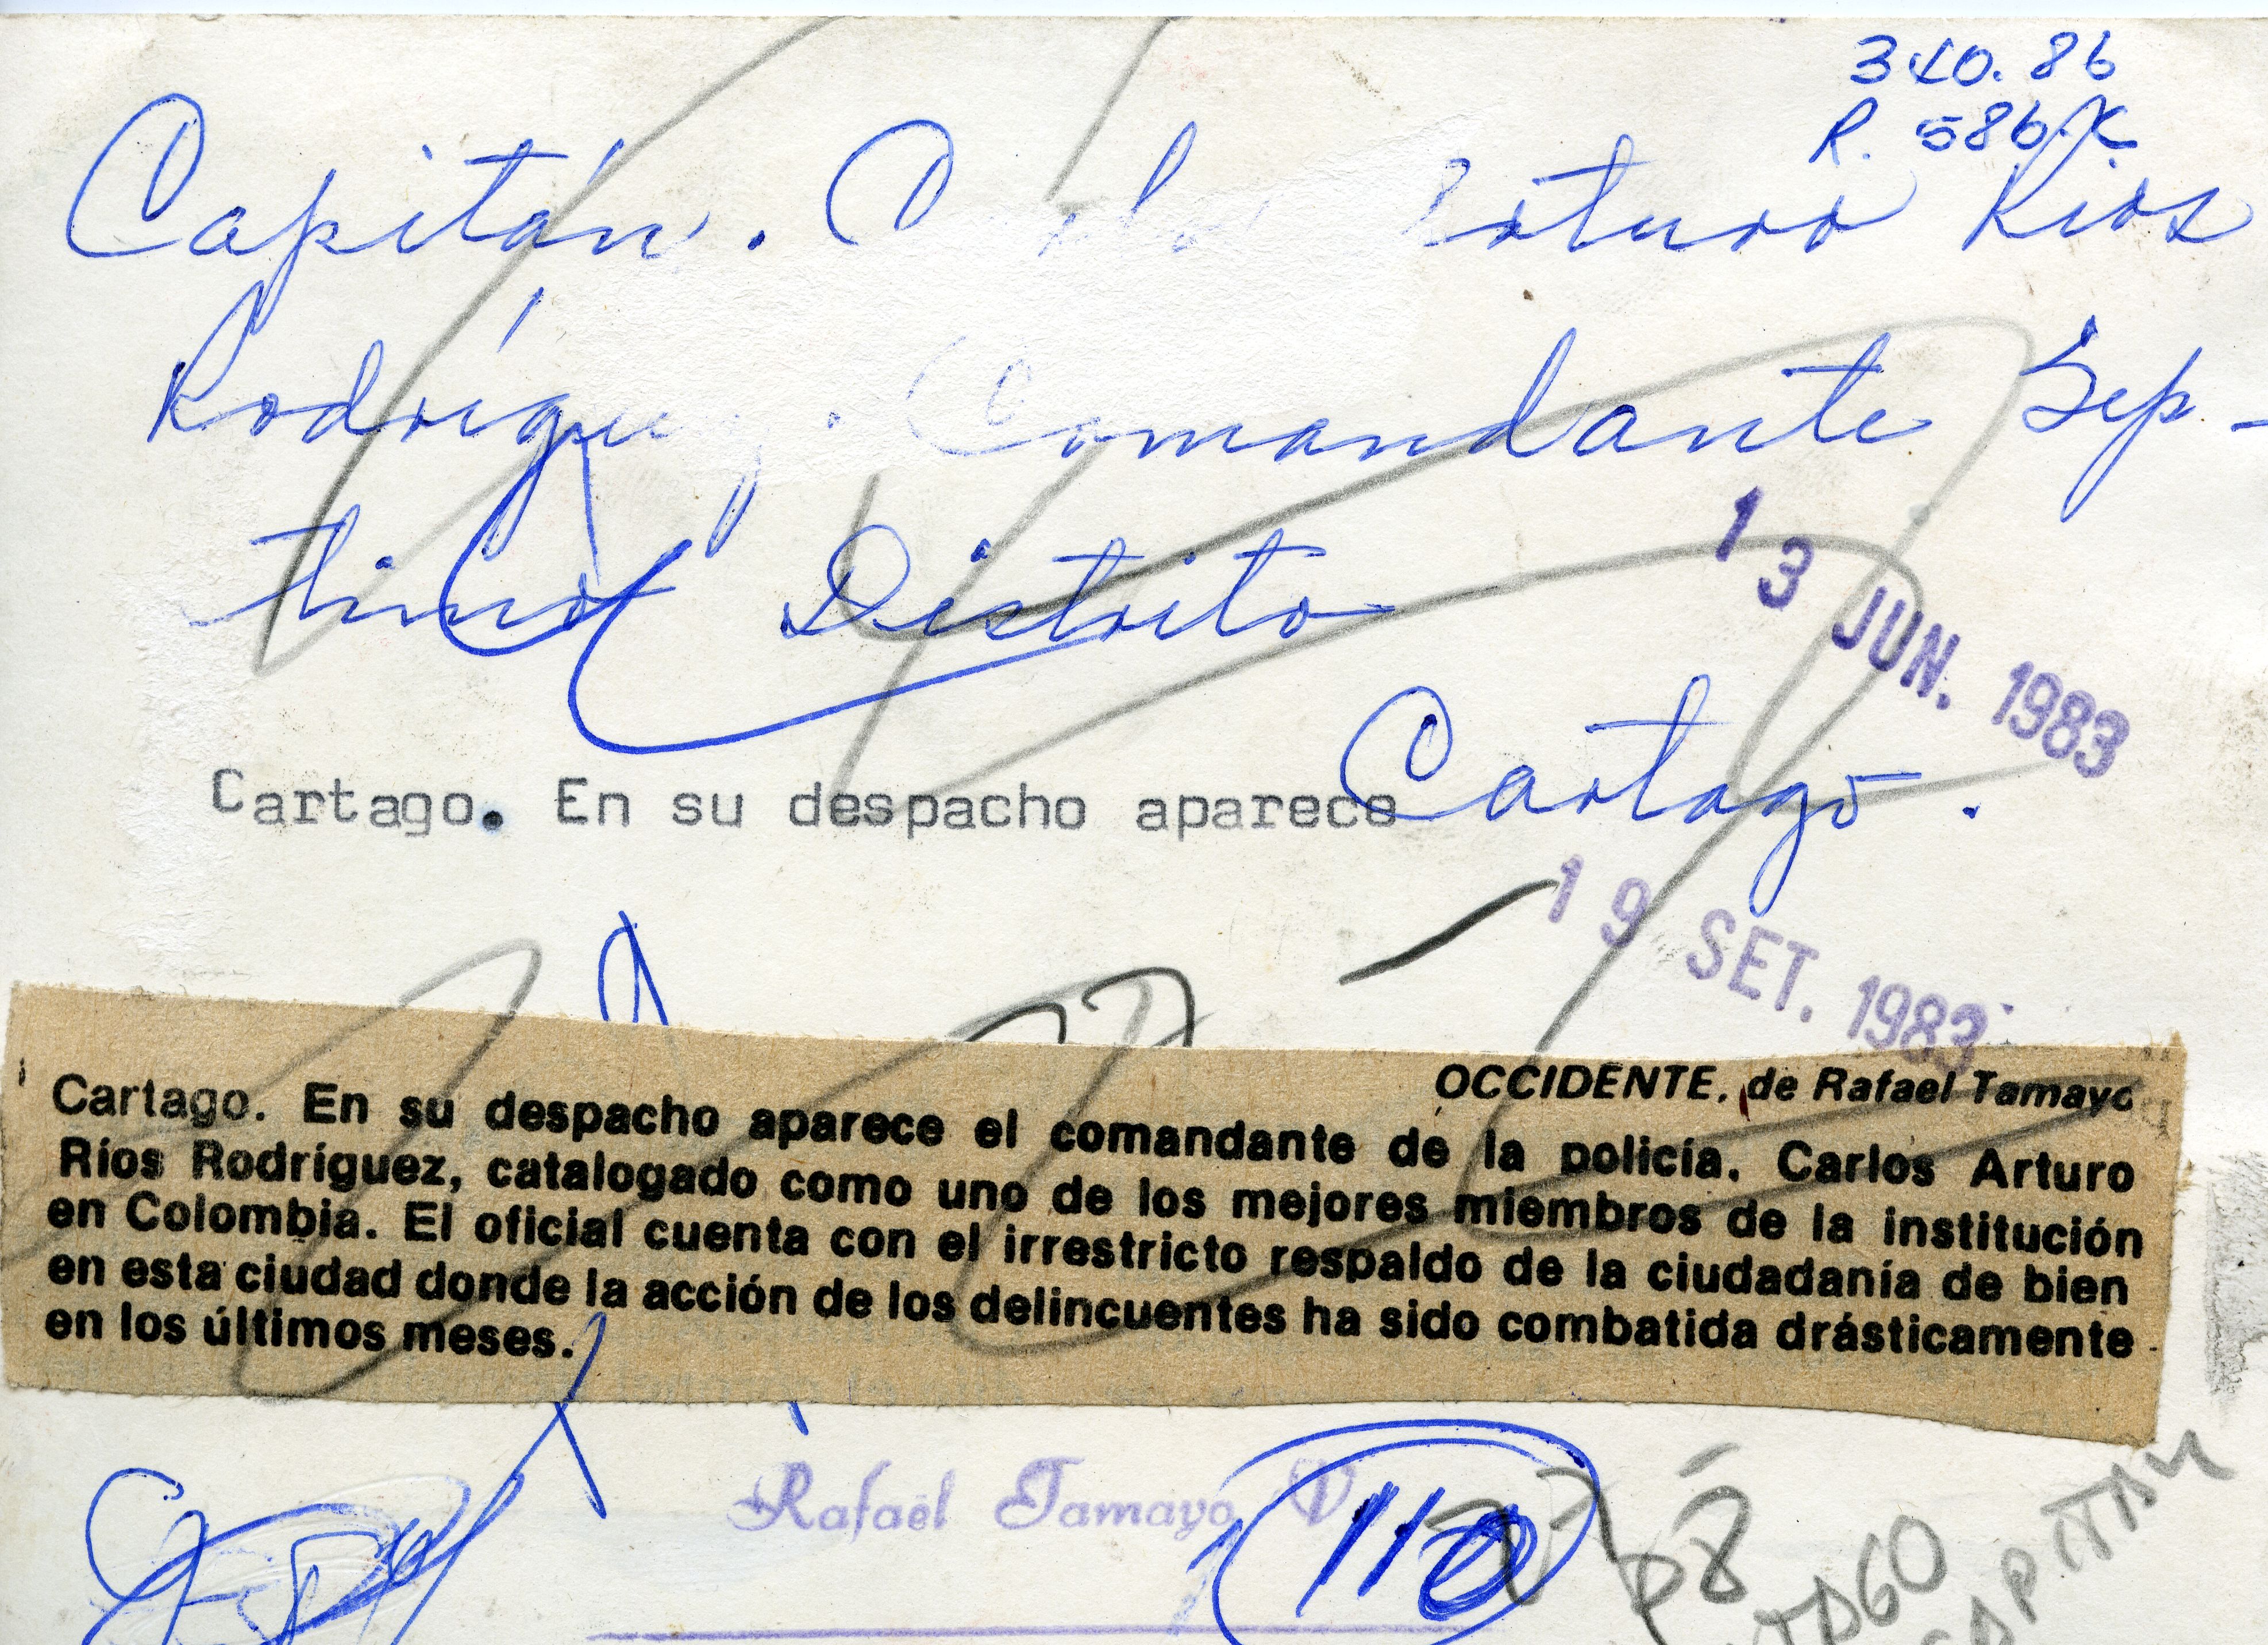 340.86
R. 586K
Capitán. Carlos Arturo Ríos
Rodríguez. Comandante Sép-
timo Distrito
13 JUN. 1983
Cartago.
Cartago. En su despacho aparece
19 SET. 1983
OCCIDENTE, de Rafael Tamayo
Cartago. En su despacho aparece el comandante de la policía, Carlos Arturo
Ríos Rodríguez, catalogado como uno de los mejores miembros de la institución
en Colombia. El oficial cuenta con el irrestricto respaldo de la ciudadanía de bien
en esta ciudad donde la acción de los delincuentes ha sido combatida drásticamente
en los últimos meses.
Rafael Tamayo V
110
CAPITAN